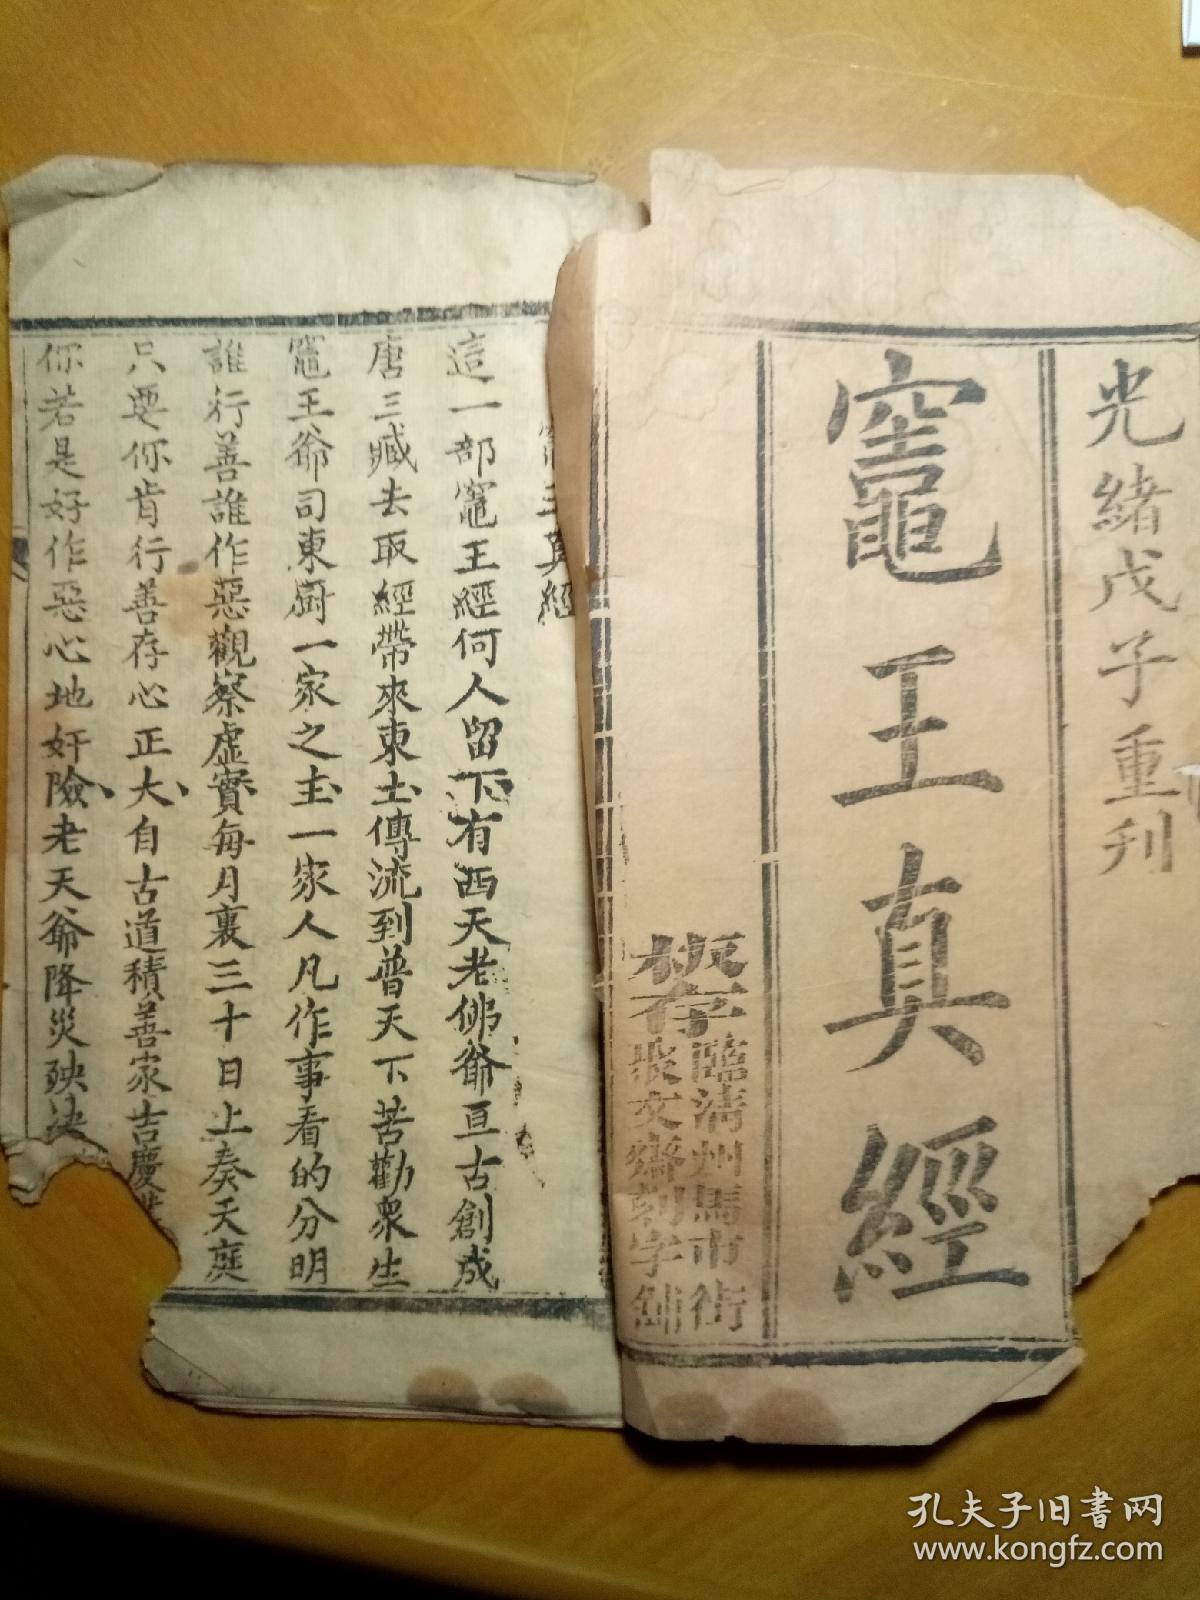 光緒戊子重刊
竈王真經
板存
臨清州馬市街
聚文齋刻字舖
竈王真經
這一部竈王經何人留下有西天老佛爺亘古創成
唐三臧去取經帶來東土傳流到普天下苦勸衆生
竈王爺司東廚一家之主一家人凡作事看的分明
誰行善誰作惡觀察虛實每月裏三十日上奏天庭
只要你肯行善存心正大自古道積善家吉慶
你若是好作惡心地奸險老天爺降災殃決
孔夫子旧书网
www.kongfz.com